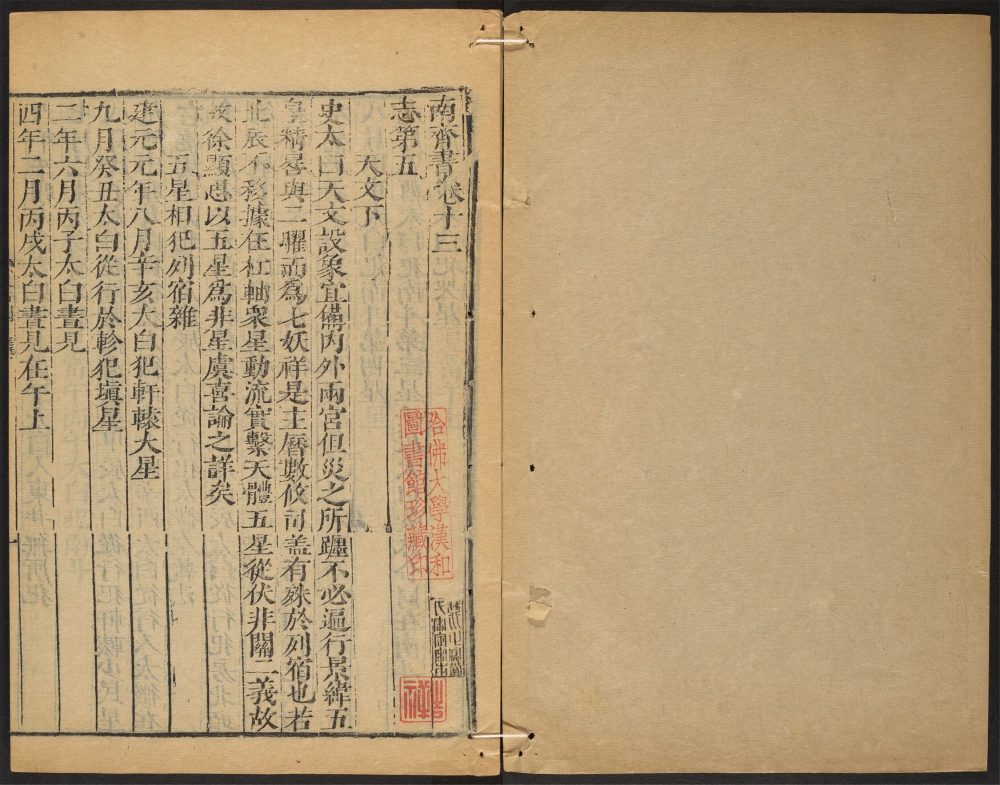 南齊書卷十三
志第五
天文下
史太曰天文設象宜備內外兩宮但災之所躔不必遍行景緯五
星精晷與二曜而為七妖祥是主曆數攸司盖有殊於列宿也若
北辰不移據在杠軸衆星動流實繫天體五星從伏非關二義故
徐顯思以五星為非星虞喜論之詳矣
五星相犯列宿雜
建元元年八月辛亥太白犯軒轅大星
九月癸丑太白從行於軫犯塡星
二年六月丙子太白晝見
四年二月丙戌太白晝見在午上
哈佛大學漢和
圖書館珍藏印